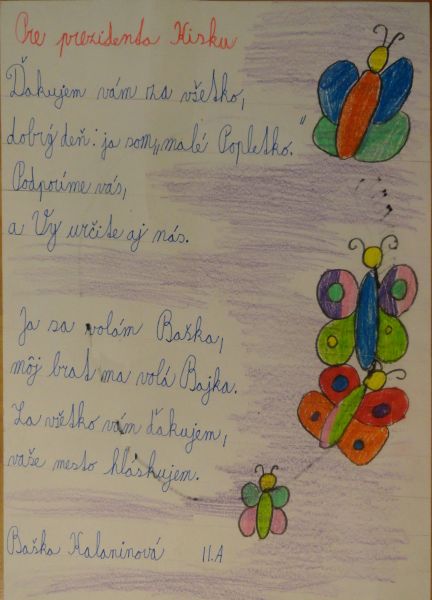 Pre prezidenta Kisku
Ďakujem vám za všetko,
dobrý deň: ja som „malé Popletko."
Podporíme vás,
a Vy určite aj nás.
Ja sa volám Baška,
môj brat ma volá Bajka.
Za všetko vám ďakujem,
vaše mesto hláskujem.
Baška Kalaninová II.A